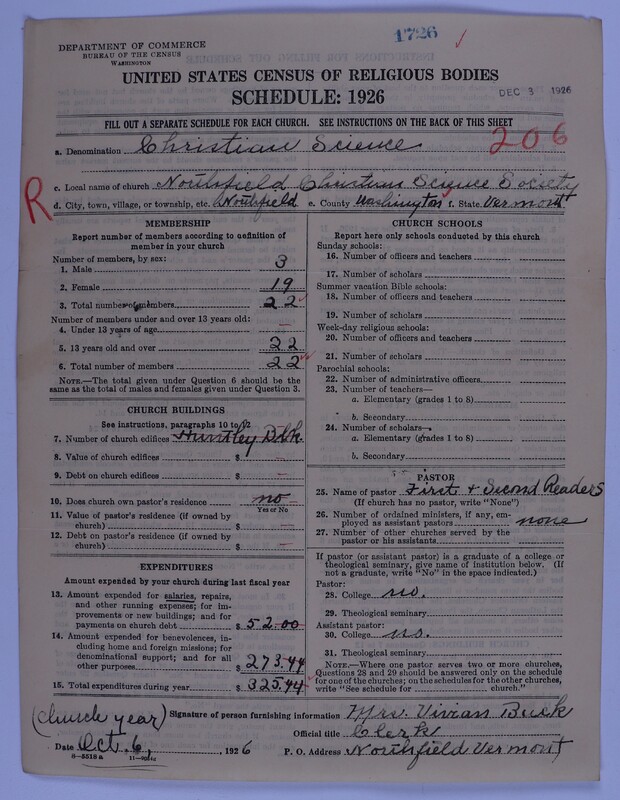 1726
DEPARTMENT OF COMMERCE
BUREAU OF THE CENSUS
WASHINGTON
UNITED STATES CENSUS OF RELIGIOUS BODIES
SCHEDULE: 1926
DEC 3 1926
FILL OUT A SEPARATE SCHEDULE FOR EACH CHURCH. SEE INSTRUCTIONS ON THE BACK OF THIS SHEET
206
a. Denomination Christian Science
R
c. Local name of church Northfield Christian Science Society
d. City, town, village, or township, etc. Northfield e. County Washington f. State Vermont
MEMBERSHIP
Report number of members according to definition of
member in your church
Number of members, by sex:
1. Male 3
2. Female 19
3. Total number of members 22
Number of members under and over 13 years old:
4. Under 13 years of age —
5. 13 years old and over 22
6. Total number of members 22
NOTE.—The total given under Question 6 should be
the same as the total of males and females given under Question 3.
CHURCH BUILDINGS
See instructions, paragraphs 10 to 12
7. Number of church edifices Huntley Blk.
8. Value of church edifices $ —
9. Debt on church edifices $ —
10. Does church own pastor's residence no
Yes or No
11. Value of pastor's residence (if owned by
church) $ —
12. Debt on pastor's residence (if owned by
church) $ —
EXPENDITURES
Amount expended by your church during last fiscal year
13. Amount expended for salaries, repairs,
and other running expenses; for im-
provements or new buildings; and for
payments on church debt $ 52.00
14. Amount expended for benevolences, in-
cluding home and foreign missions; for
denominational support; and for all
other purposes $ 273.44
15. Total expenditures during year $ 325.44
CHURCH SCHOOLS
Report here only schools conducted by this church
Sunday schools:
16. Number of officers and teachers
17. Number of scholars
Summer vacation Bible schools:
18. Number of officers and teachers
19. Number of scholars
Week-day religious schools:
20. Number of officers and teachers
21. Number of scholars
Parochial schools:
22. Number of administrative officers
23. Number of teachers—
a. Elementary (grades 1 to 8)
b. Secondary
24. Number of scholars—
a. Elementary (grades 1 to 8)
b. Secondary
PASTOR
25. Name of pastor First + Second Readers
(If church has no pastor, write "None")
26. Number of ordained ministers, if any, em-
ployed as assistant pastors none
27. Number of other churches served by the
pastor or his assistants
If pastor (or assistant pastor) is a graduate of a college or
theological seminary, give name of institution below. (If
not a graduate, write "No" in the space indicated.)
Pastor:
28. College no.
29. Theological seminary
Assistant pastor:
30. College no.
31. Theological seminary
NOTE.—Where one pastor serves two or more churches,
Questions 28 and 29 should be answered only on the schedule
for one of the churches; on the schedules for the other churches,
write "See schedule for church."
(church year) Signature of person furnishing information Mrs. Vivian Buck
Official title Clerk
Date Oct. 6, 1926 P. O. Address Northfield Vermont
8—5518a